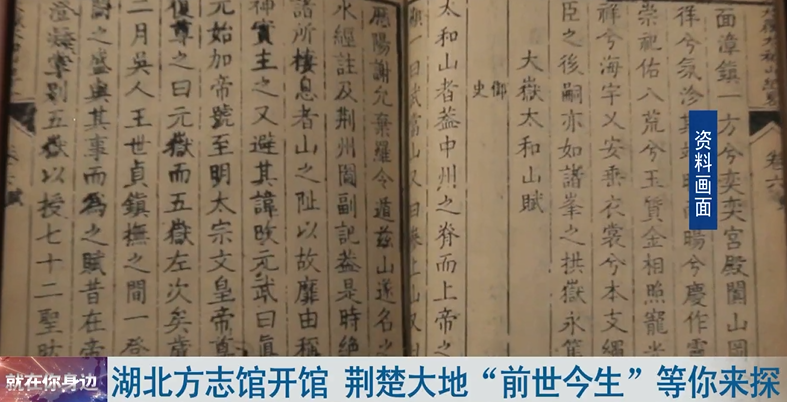 面漳鎮一方兮奕奕宮殿闢山岡
徉兮氛沴其暘兮慶作
崇祀佑八荒兮玉質金相照寵光
祥兮海宇乂安垂衣裳兮本支繩
臣之後嗣亦如諸峯之拱嶽永
大嶽太和山賦
御史
太和山者蓋中州之脊而上帝之
一曰武當山又曰上山又曰
應陽謝允棄羅令遁茲山遂名之
水經註及荆州圖副記蓋是時絶
諸所棲息者山之阯以故靡由稱
神實主之又避其諱改元武曰眞
元始加帝號至明太宗文皇帝尊
復尊之曰元嶽而五嶽左次矣歲
二月吳人王世貞鎮撫之間一登
之盛典其事而為之賦昔在帝
澄寧别五嶽以授七十二聖
卷六
资料画面
就在你身边
湖北方志馆开馆 荆楚大地“前世今生”等你来探